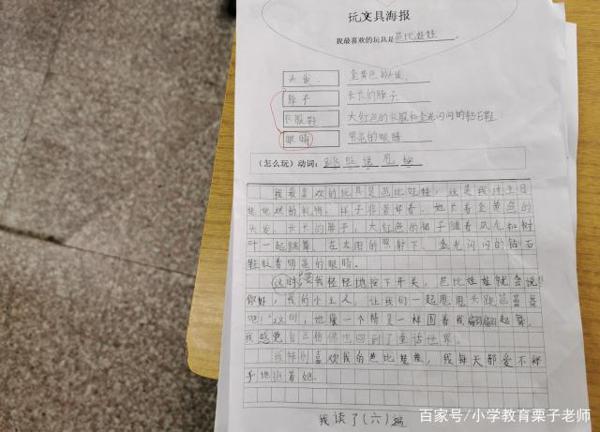 玩文具海报
我最喜欢的玩具是芭比娃娃。
头发 金黄色的头发
脖子 长长的脖子
衣服鞋 大红色的衣服和金光闪闪的钻石鞋
眼睛 黑亮的眼睛
(怎么玩)动词:
我最喜欢的玩具是芭比娃娃,这是我过生日
她有着金黄色的
头发,长长的脖子,大红色的裙子随着风儿和树
叶一起 在太阳的照射下,金光闪闪的钻石
鞋 的眼睛。
这时我轻轻地按下开关,芭比娃娃就会说:
你好,我的小主人,让我们一起
吧!"这时,她像一个精灵一样围着我翩翩起舞,
我感觉自己 了童话世界。
我特别喜欢我的芭比娃娃,我每天都爱不释
手地 着她。
我读了(六)遍
百家号/小学教育栗子老师